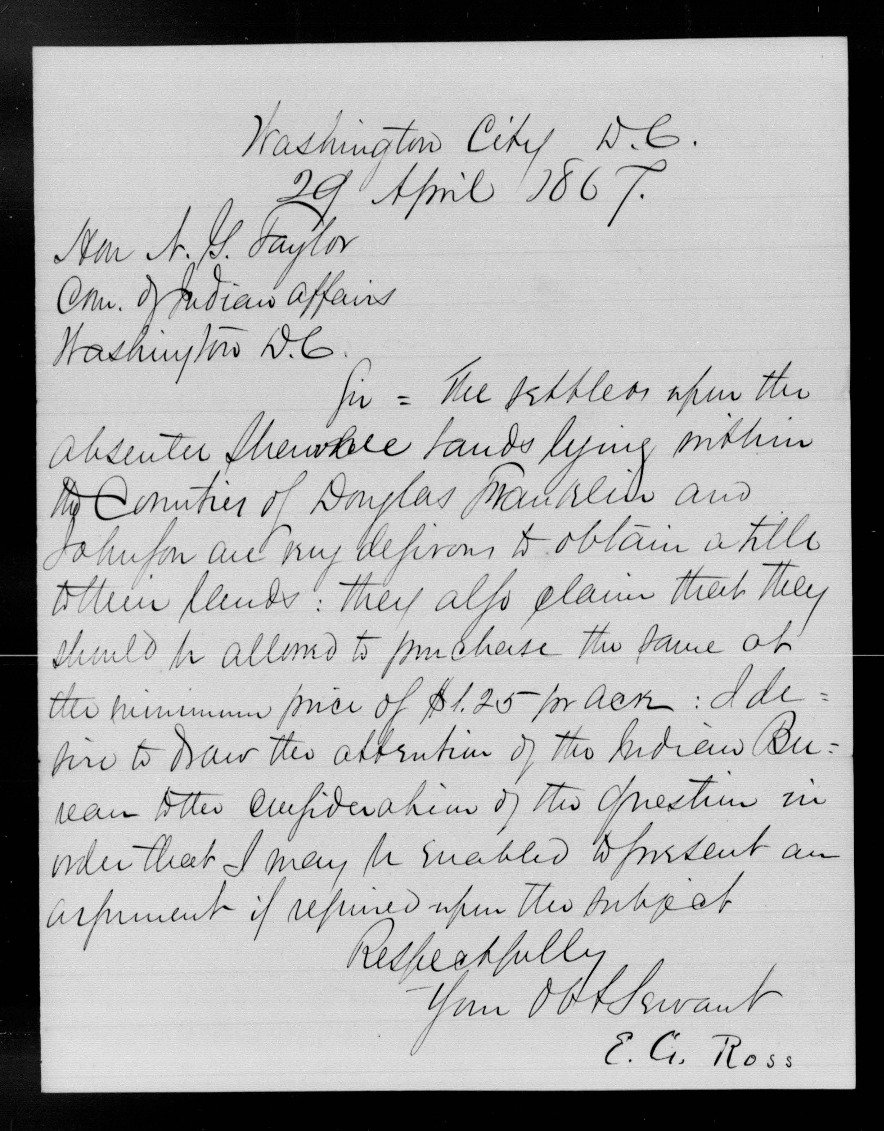 Washington City D.C.
29 April 1867.
Hon N. G. Taylor
Com. of Indian Affairs
Washington D.C.
Sir = The settlers upon the
absentee Shawnee lands lying within
the Counties of Douglas Franklin and
Johnson are very desirous to obtain a title
to their lands : they also claim that they
should be allowed to purchase the same at
the minimum price of $1.25 pr acre : I de =
sire to draw the attention of the Indian Bu =
reau to the consideration of the question in
order that I may be enabled to present an
argument if required upon the subject
Respectfully
Your Obt Servant
E. G. Ross